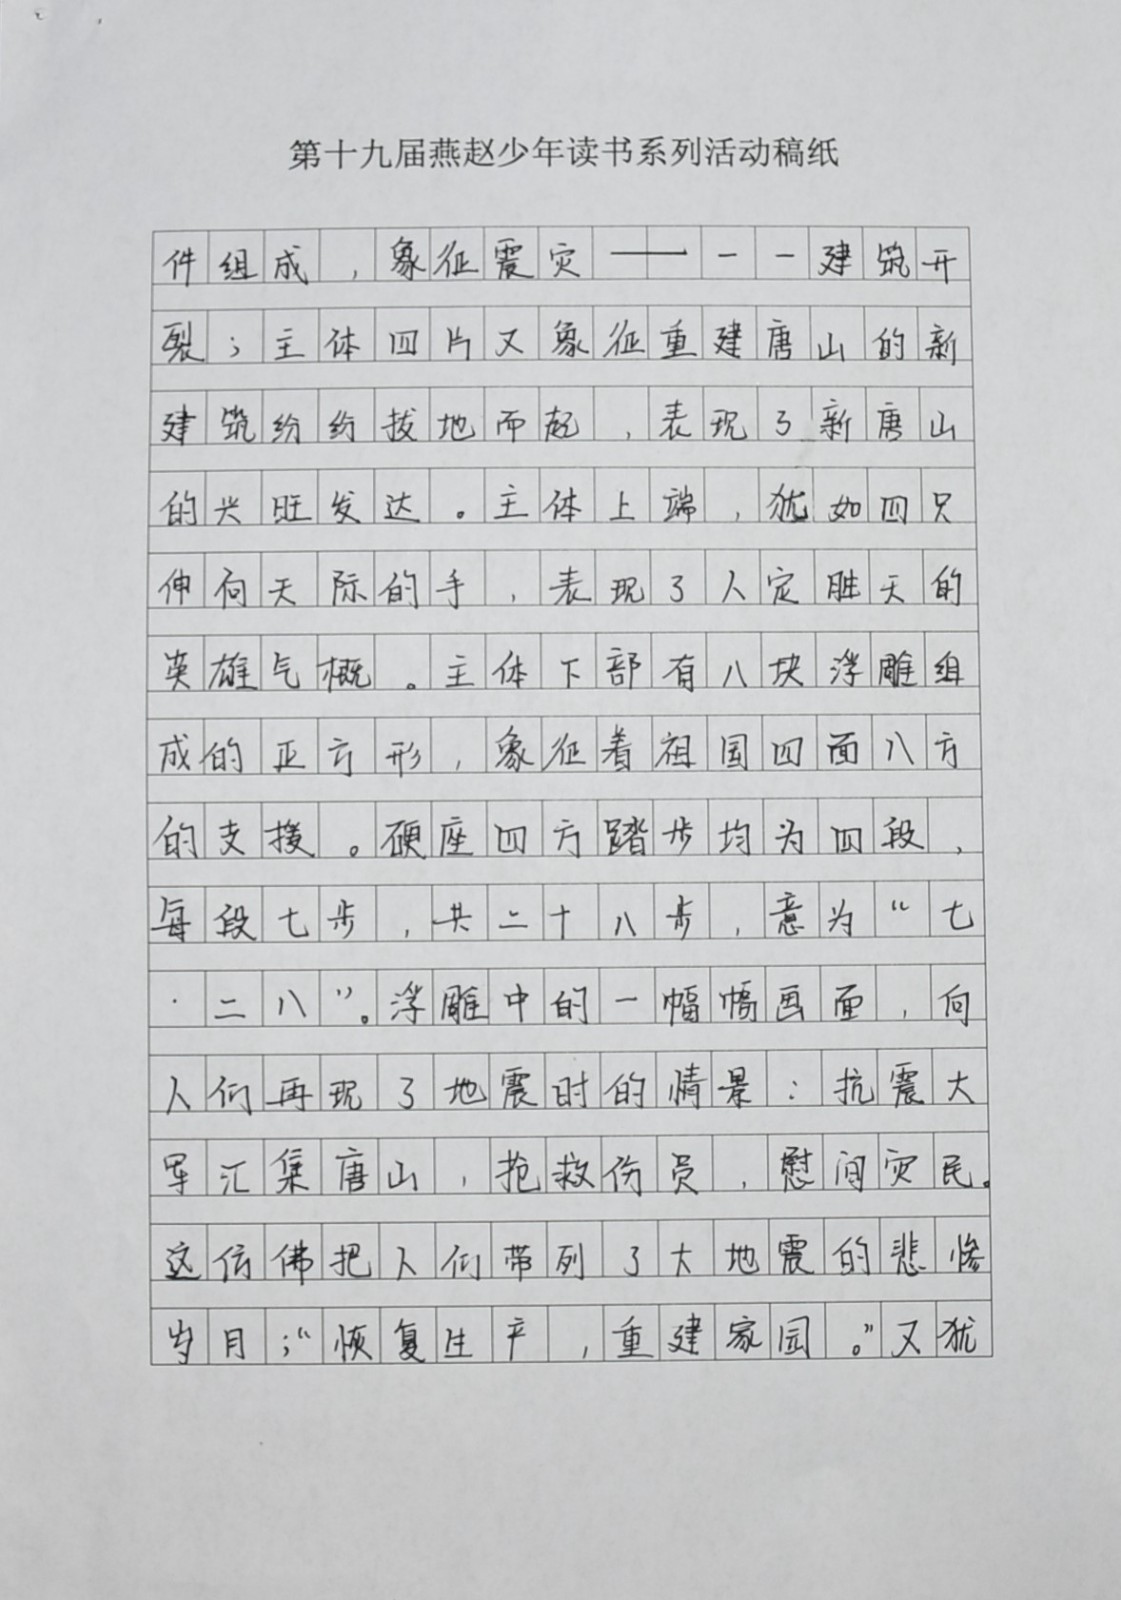 第十九届燕赵少年读书系列活动稿纸
件组成，象征震灾——一一建筑开
裂；主体四片又象征重建唐山的新
建筑纷纷拔地而起，表现了新唐山
的兴旺发达。主体上端，犹如四只
伸向天际的手，表现了人定胜天的
英雄气概。主体下部有八块浮雕组
成的正方形，象征着祖国四面八方
的支援。硬座四方踏步均为四段，
每段七步，共二十八步，意为“七
·二八”。浮雕中的一幅幅画面，向
人们再现了地震时的情景：抗震大
军汇集唐山，抢救伤员，慰问灾民。
这仿佛把人们带列了大地震的悲惨
岁月；“恢复生产，重建家园。”又犹